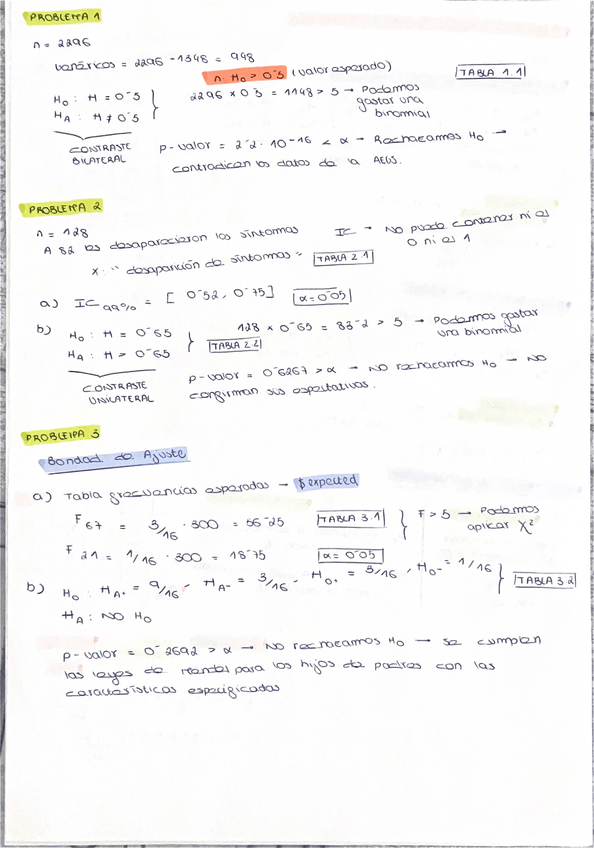 PROBLEMA 1
n = 2296
varáricos = 2296 - 1348 = 948
n · H₀ > 0'5 (valor esperado)
TABLA 1.1
H₀ : H = 0'5
HA : H ≠ 0'5
2296 x 0'5 = 1148 > 5 → Podemos
gastar una
binomial
CONTRASTE
BILATERAL
p-valor = 2'2 · 10⁻¹⁶ < α → Rechazamos H₀ →
contradicen los datos de la AEGS.
PROBLEMA 2
n = 128
A 82 les desaparecieron los síntomas
IC → No puede contener ni el
0 ni el 1
x: "desaparición de síntomas"
TABLA 2.1
a) IC 99% = [ 0'52, 0'75 ] α = 0'05
b) H₀ : H = 0'65
HA : H > 0'65
128 x 0'65 = 83'2 > 5 → Podemos gastar
una binomial
TABLA 2.2
CONTRASTE
UNILATERAL
p-valor = 0'6267 > α → No rechazamos H₀ → No
confirman sus expectativas.
PROBLEMA 3
Bondad de Ajuste
a) Tabla frecuencias esperadas → $expected
F 67 = 3/16 · 300 = 56'25
TABLA 3.1
F > 5 → Podemos
aplicar χ²
F 21 = 1/16 · 300 = 18'75
α = 0'05
b) H₀ : HA+ = 9/16, HA- = 3/16, H0+ = 3/16, H0- = 1/16
TABLA 3.2
HA : NO H₀
p-valor = 0'2692 > α → No rechazamos H₀ → se cumplen
las leyes de Mendel para los hijos de padres con las
características especificadas